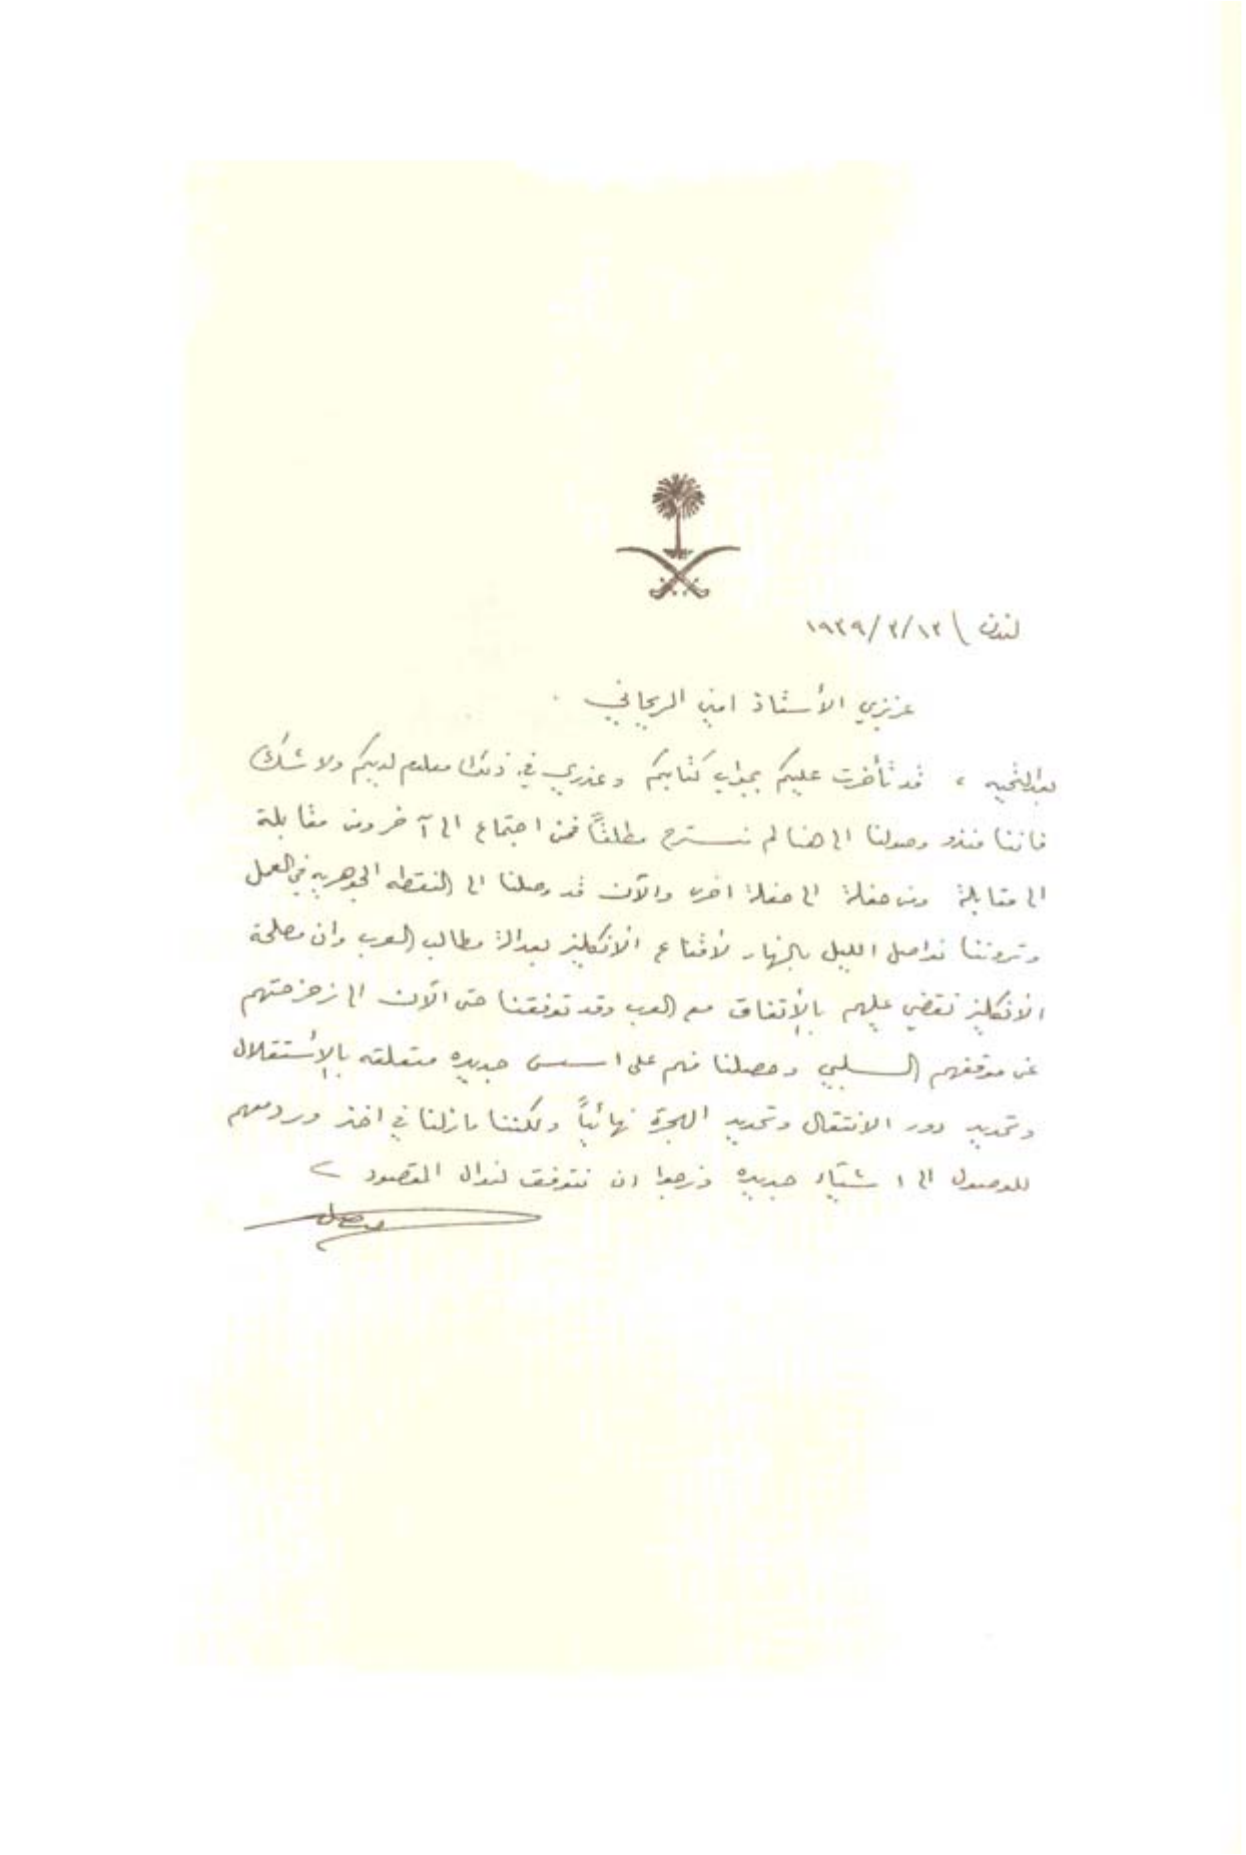 لندن \ ١٢/٣/١٩٣٩
عزيزي الأستاذ امين الريحاني .
بعد التحيه ، قد تأخرت عليكم بجواب كتابكم وعذري في ذلك معلوم لديكم ولا شك
فاننا منذ وصولنا الى هنا لم نسترح مطلقاً فمن اجتماع الى آخر ومن مقابلة
الى مقابلة ومن حفلة الى حفلة اخرى والآن قد وصلنا الى النقطه الجوهريه في العمل
وتروننا نواصل الليل بالنهار لأقناع الانكليز بعدالة مطالب العرب وان مصلحة
الانكليز تقضي عليهم بالأتفاق مع العرب وقد توفقنا حتى الآن الى زحزحتهم
عن موقفهم السلبي وحصلنا منهم على اسس جديده متعلقه بالإستقلال
وتحديد دور الانتقال وتحديد الهجرة نهائياً ولكننا مازلنا في اخذ ورد معهم
للوصول الى اشياء جديده ونرجوا ان نتوفق لنوال المقصود
فيصل